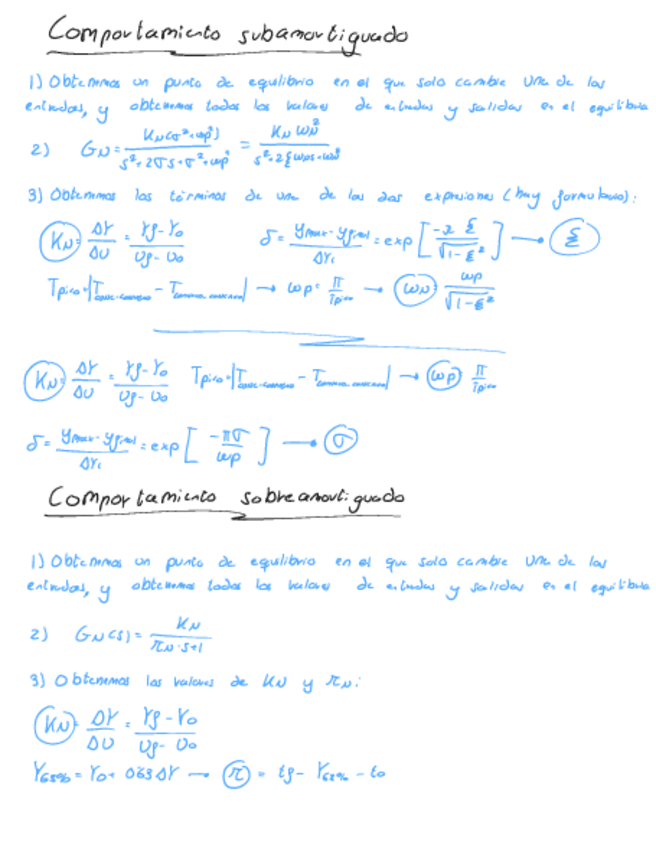 Comportamiento subamortiguado
1) Obtenemos un punto de equilibrio en el que solo cambie una de las
entradas, y obtenemos todos los valores de entradas y salidas en el equilibrio
2) GN = KN(σ²+ωp²) / (s²+2σs+σ²+ωp²) = KN ωN² / (s²+2ξωNs+ωN²)
3) Obtenemos los términos de una de las dos expresiones (hay formulario):
KN = ΔY/ΔU = (Yf-Y0)/(Uf-U0) δ = (ymax-yfinal)/ΔY = exp[-π ξ/√(1-ξ²)] → ξ
Tpico = |T - T| → ωp = π/Tpico → ωN ωp/√(1-ξ²)
KN = ΔY/ΔU = (Yf-Y0)/(Uf-U0) Tpico = |T - T| → ωp π/Tpico
δ = (ymax-yfinal)/ΔY = exp[-πσ/ωp] → σ
Comportamiento sobreamortiguado
1) Obtenemos un punto de equilibrio en el que solo cambie una de las
entradas, y obtenemos todos los valores de entradas y salidas en el equilibrio
2) GN(s) = KN / (τN·s+1)
3) Obtenemos los valores de KN y τN:
KN = ΔY/ΔU = (Yf-Y0)/(Uf-U0)
Y63% = Y0 + 0'63 ΔY → τ = tf - Y63% - t0